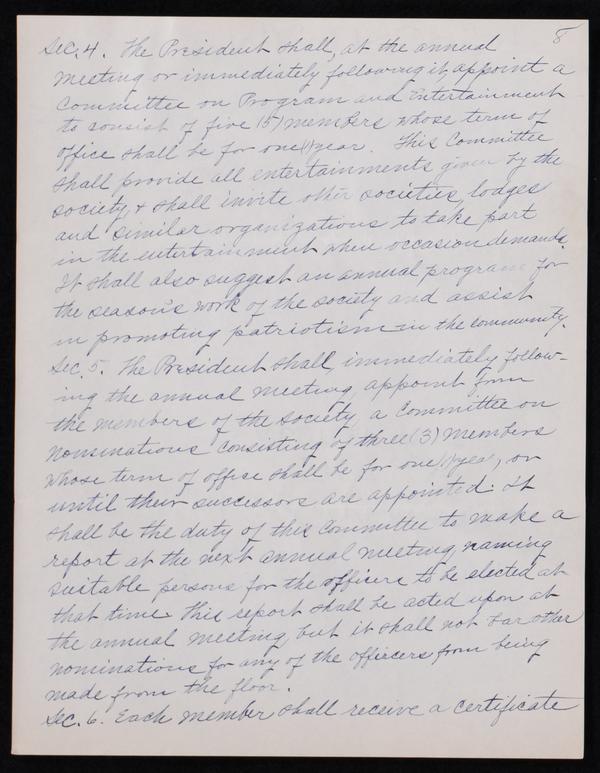 8
Sec. 4. The President shall, at the annual
meeting or immediately following it, appoint a
Committee on Program and Entertainment
to consist of five (5) members whose term of
office shall be for one (1) year. This Committee
shall provide all entertainments given by the
society, & shall invite other societies, lodges
and similar organizations to take part
in the entertainment when occasion demands.
It shall also suggest an annual program for
the season's work of the society and assist
in promoting patriotism in the community.
Sec. 5. The President shall, immediately follow-
ing the annual meeting, appoint from
the members of the society, a Committee on
nominations consisting of three (3) members
whose term of office shall be for one (1) year, or
until their successors are appointed. It
shall be the duty of this Committee to make a
report at the next annual meeting, naming
suitable persons for the officers to be elected at
that time. This report shall be acted upon at
the annual meeting, but it shall not bar other
nominations for any of the officers from being
made from the floor.
Sec. 6. Each member shall receive a certificate